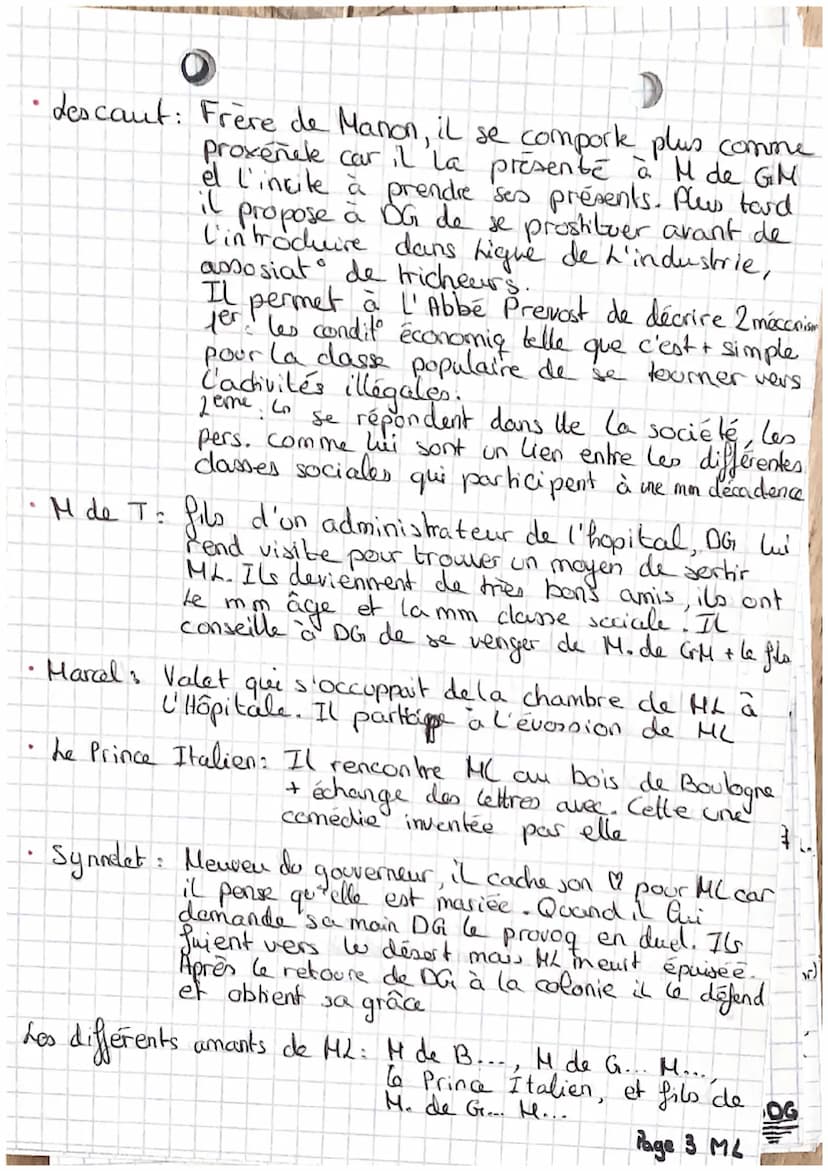 • Lescaut : Frère de Manon, il se comporte plus comme
proxénète car il la présenté à M de GM
et l'incite à prendre ses présents. Plus tard
il propose à DG de se prostituer avant de
l'introduire dans Ligue de L'industrie,
assosiat° de tricheurs.
Il permet à L'Abbé Prevost de décrire 2 mécanism
1er : les condit° économiq telle que c'est + simple
pour la classe populaire de se tourner vers
l'activités illégales.
2ème : se répondent dans tte la société, les
pers. comme lui sont un lien entre les différentes
classes sociales qui participent à une mm décadence
• M de T : fils d'un administrateur de l'hopital, DG lui
rend visite pour trouver un moyen de sortir
ML. Ils deviennent de très bons amis, ils ont
le mm âge et la mm classe sociale. Il
conseille à DG de se venger de M. de GM + le fils
• Marcel : Valet qui s'occuppait de la chambre de ML à
L'Hôpitale. Il participe à l'évasion de ML
• Le Prince Italien : Il rencontre ML au bois de Boulogne
+ échange des lettres avec. Cette une
comédie inventée par elle
• Synnelet : Neuveu du gouverneur, il cache son ♡ pour ML car
il pense qu'elle est mariée. Quand il lui
demande sa main DG le provoq en duel. Ils
fuient vers le désert mais ML meurt épuisée.
Après le retoure de DG à la colonie il le défend
et obtient sa grâce
Les différents amants de ML : M de B..., M de G... M...,
le Prince Italien, et fils de
M. de G... M...
DG
Page 3 ML